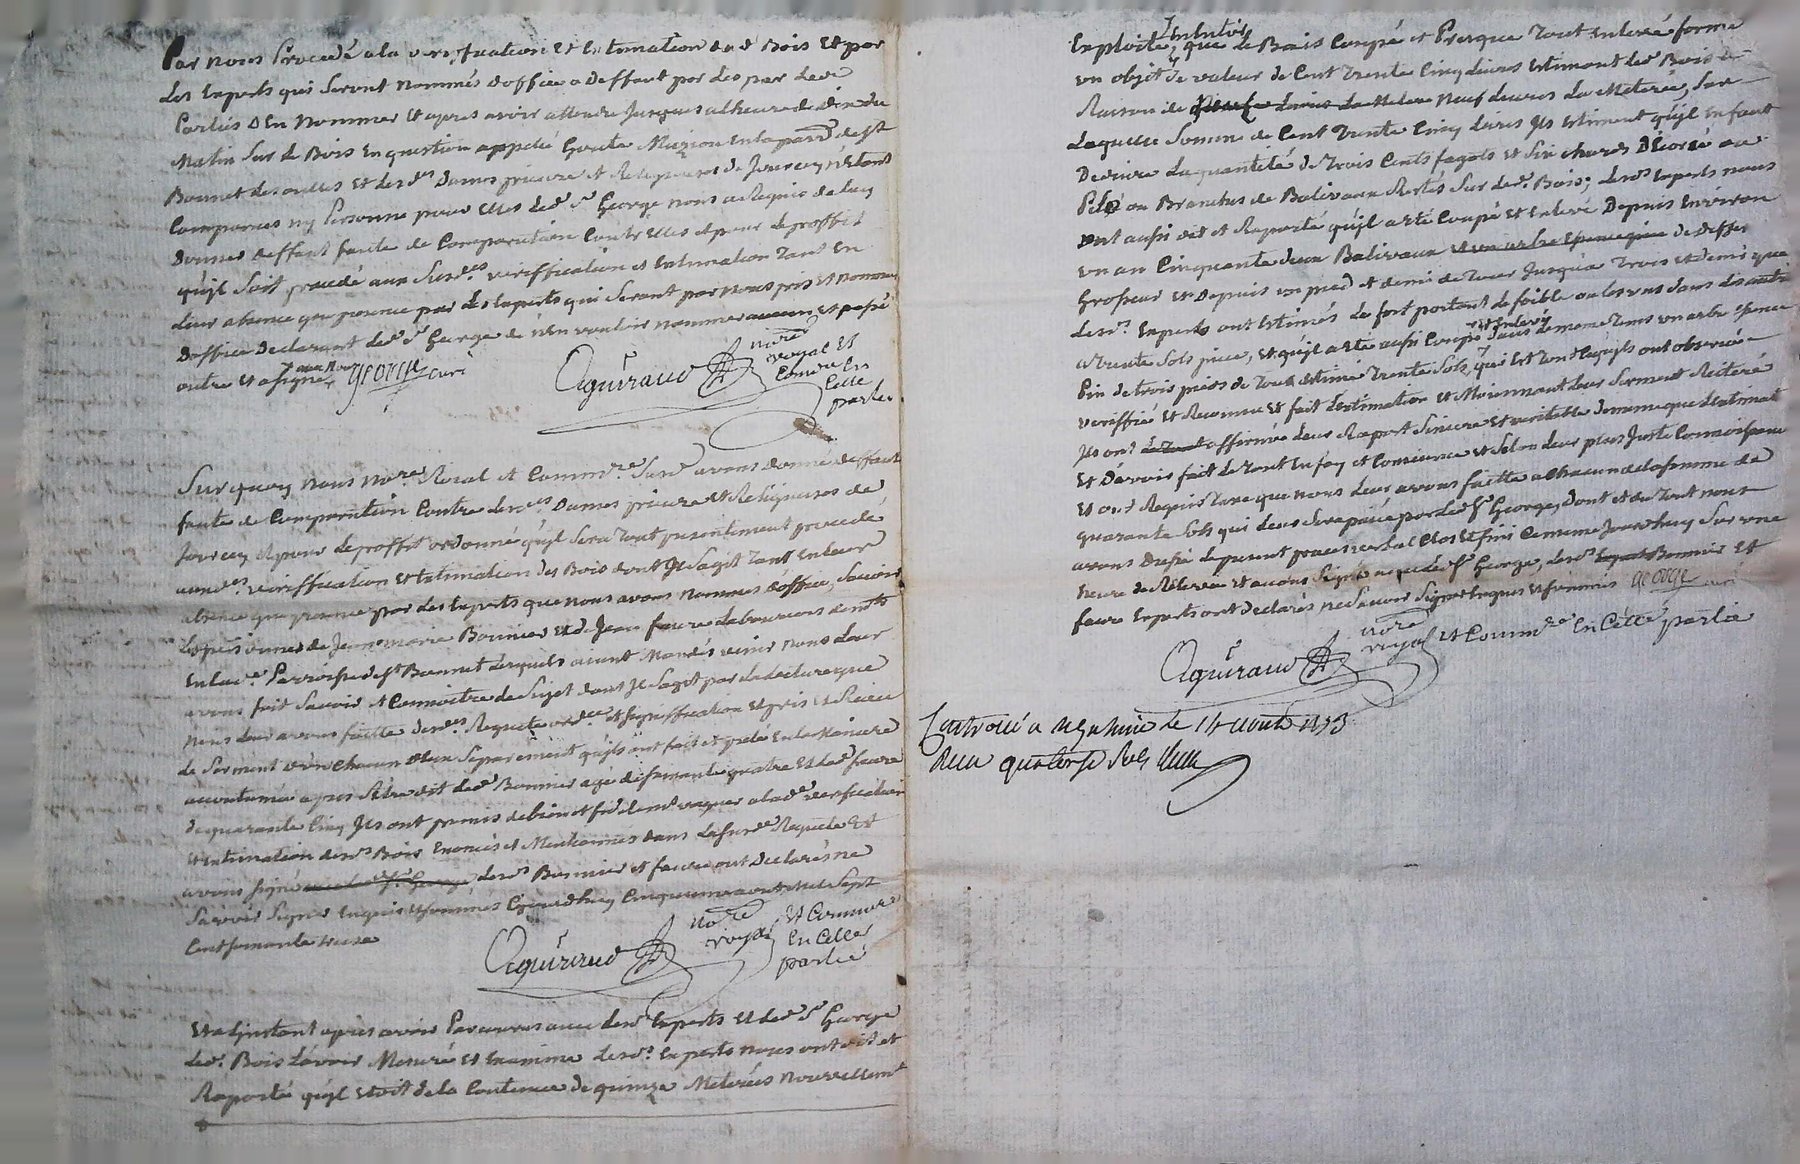 Par nous procedé a la veriffication et Estimation dud Bois et par
des Experts qui seront nommés d'office a deffaut par les parties
d'En nommer Et apres avoir attendu jusques a l'heure de dix du
matin sur le Bois en question appelé Goutte en la parr.e de St
Bonnet des ouilles et lesd.es Dames prieure et Religieuses de Jourcey n'Etant
Comparues ny personne pour Elles led.t Sr George nous a Requis de luy
donner deffaut faute de Comparution Contr'Elles et pour le proffit
qu'il soit procedé aux Susd.es veriffication et Estimation Tant En
leur absence que presence par des Experts qui seront par nous pris et nommés
d'office declarant led.t Sr George de n'En vouloir nommer aucun et passé
outre Et a signé avec Nous George curé
Aguiraud no.re royal Et Comm.re En Cette partie
Sur quoy nous No.re Roial et Comm.re Susd.t avons donné deffaut
faute de Comparution Contre lesd.es Dames prieure et Religieuses de
Jourcey et pour le proffit ordonné qu'il sera Tout presentement procedé
aux d.es veriffication et Estimation des Bois dont Il s'agit Tant En leur
absence que presence par des Experts que nous avons nommés d'office, Savoir
les personnes de Jean marie Bonnier et de Jean faure laboureurs dem.ts
En lad.e Parroisse de St Bonnet lesquels aiant mandés venir nous leur
avons fait Savoir et Connoitre le Sujet dont Il s'agit par la lecture que
nous leur avons faitte desd.es Requete ord.ce et signiffication Et pris et Reçu
le serment d'un chacun d'Eux Separement qu'ils ont fait et preté En la maniere
accoutumée apres s'etre dit led.t Bonnier agé de soixante quatre Et led.t faure
de quarante Cinq Ils ont promis de bien et fidelem.t vaquer a lad.e veriffication
et Estimation desd.s Bois Enoncés et Mentionnés dans la susd.e Requete Et
avons signé avec led.t Sr George lesd.s Bonnier et faure ont declarés ne
Savoir signer Enquis et sommés Ce jourdhuy Cinquieme aout mil sept
Cent soixante treize
Aguiraud no.re royal Et Comm.re En Cette partie
Et a l'instant apres avoir Parcouru avec lesd.s Experts Et led.t Sr George
led.t Bois l'avoir Mesuré et Examiné lesd.s Experts nous ont dit et
Raporté qu'il Etoit de la Contenue de quinze Meterées nouvellem.t
Exploité, que le Bois Coupé et Presque Tout Enlevé forme
un objet de valeur de Cent Trente Cinq livres Estimant led.t Bois a
Raison de neuf livres la Meterée, Sur
laquelle Somme de Cent Trente Cinq livres Ils Estiment qu'il En faut
deduire la quantité de Trois Cents fagots et Six chards d'Ecorce ou
Pelo ou Branches de Baliveaux Restés Sur led.t Bois; lesd.s Experts nous
ont aussi dit et Raporté qu'il a eté Coupé Et Enlevé Depuis Environ
un an Cinquante deux Baliveaux et un arbre Epence pin de differ
Grosseur Et Depuis un pied et demi de Tour Jusqu'a Trois et demi que
lesd.s Experts ont Estimés le fort portant le foible ou les uns dans les autres
a Trente sols piece, Et qu'il a eté aussi Coupé et Enlevé dans le meme Tems un arbre Epence
Pin de Trois pieds de Tour Estimé Trente Sols, qui Est Tout Ce qu'ils ont observé
veriffié Et Reconnu Et fait l'estimation et Moiennant leur serment Reiteré
Ils ont affirmé leur Raport Sincere Et veritable de meme que l'estimat
Et d'avoir fait le tout En foy et Consience et Selon leur plus Juste Connoissance
Et ont Requis Taxe que nous leur avons faitte a Chacun de la somme de
quarante Sols qui leur sera paiée par led.t Sr George, dont et du Tout nous
avons Dressé le present procés verbal Clos Et fini Ce meme Jourd'huy Sur une
heure de Relevée et avons Signé avec led.t Sr George, lesd.s Bonnier Et
faure Experts ont Declarés ne Savoir Signer Enquis Et sommés George curé
Aguiraud no.re royal et Comm.re En Cette partie
Controllé a le 14 aout 1773
Reçu quatorze Sols